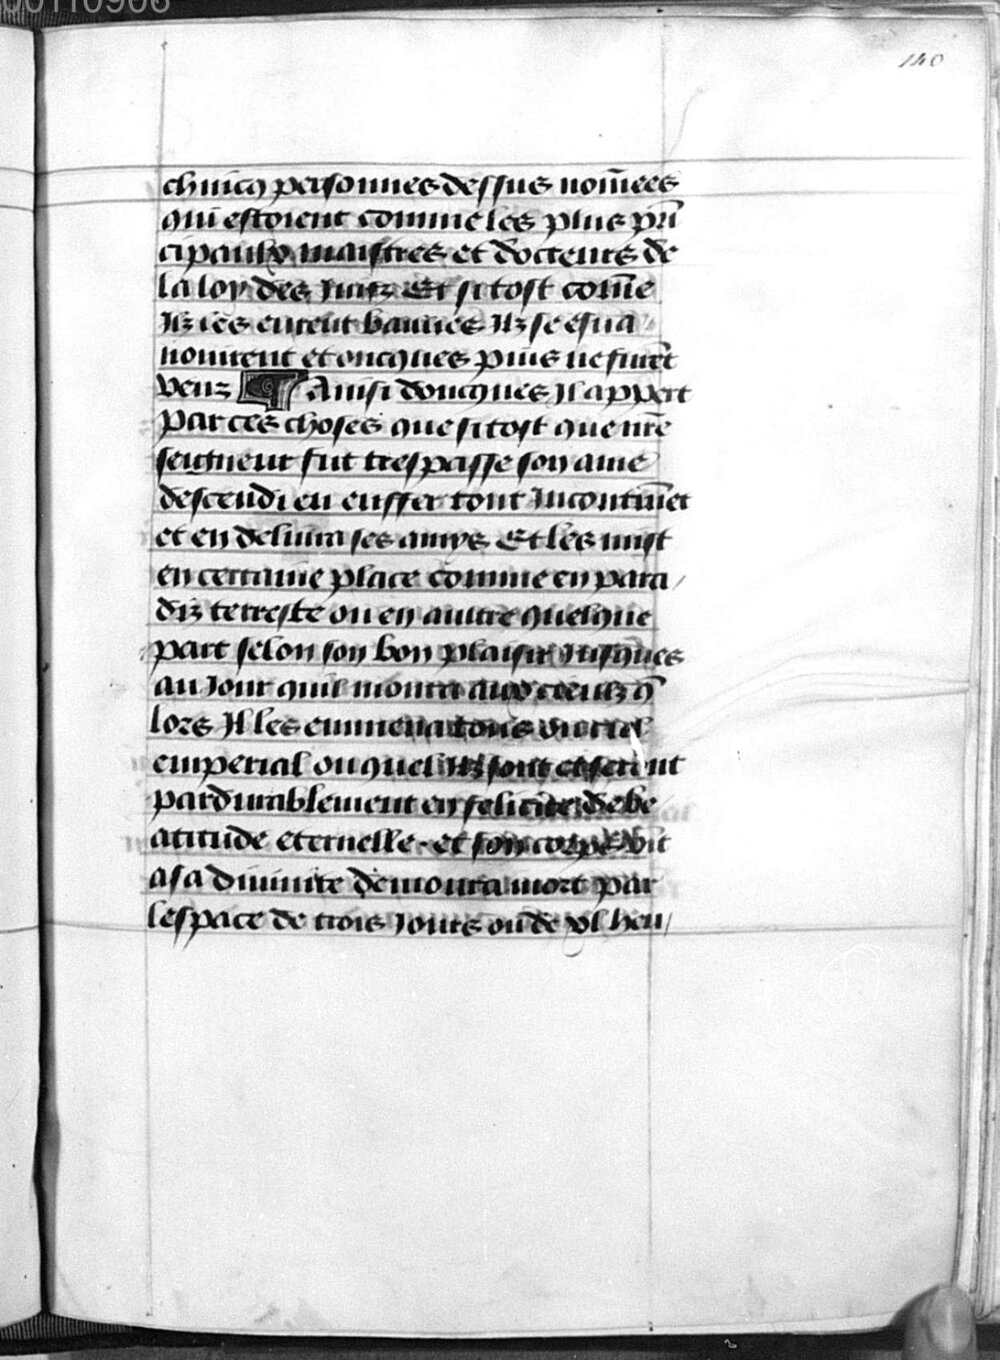 140
chincq personnes dessus nom̃ees
qui estoient comme les plus prĩ
cipaulx maistres et docteurs de
la loy des Juifz Et si tost com̃e
Ilz les eurent bailliés Ilz se esua
nouirent et oncques puis ne furẽt
veuz Ainsi doncques Il appert
par ces choses que si tost que nr̃e
seigneur fut trespasse son ame
descendi en enffer tout Incontinẽt
et en deliura ses amys Et les mist
en certaine place comme en para/
diz terrestre ou en aultre quelque
part selon son bon plaisir Jusques
au Jour quil monta aux cieulz q̃
lors Il les emmena tous ou ciel
emperial ou quel Ilz sont et seront
pardurablement en felicite de be
atitude eternelle. et son corps vnit
a sa diuinite demoura mort par
lespace de trois Jours ou de xl heu/